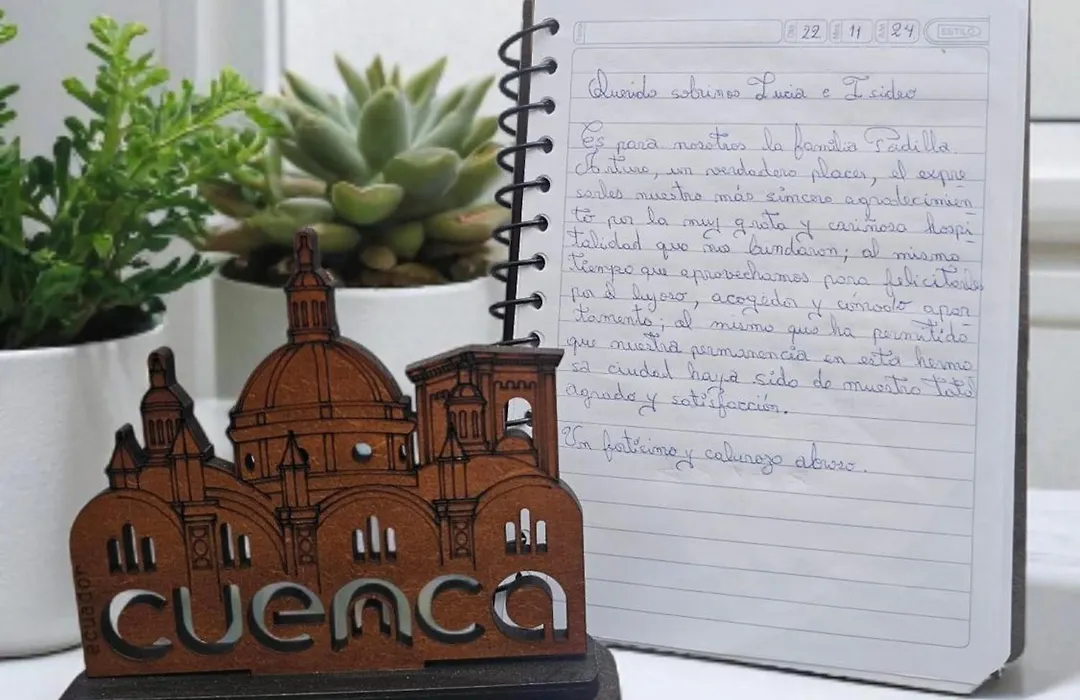 22 11 24 ESTILO
Querido sobrinos Lucia e Isidro
Es para nosotros la familia Padilla
Arturo, un verdadero placer, el expre
sarles nuestro más sincero agradecimien
to por la muy grata y cariñosa hospi
talidad que nos brindaron; al mismo
tiempo que aprovechamos para felicitarles
por el lujoso, acogedor y cómodo apar
tamento; al mismo que ha permitido
que nuestra permanencia en esta hermo
sa ciudad haya sido de nuestro total
agrado y satisfacción.
Un forticimo y calurozo abrazo.
ecuador
cuenca